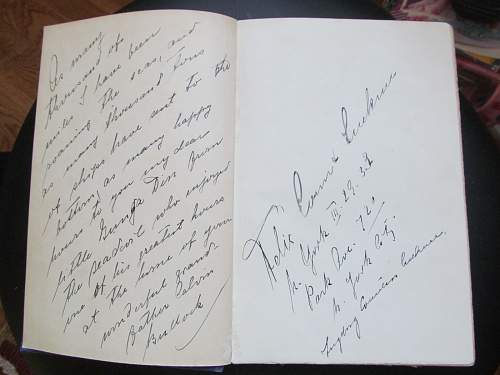 As many
thousand of
miles I have been
roaming the seas, and
as many thousand Tons
of ships have sent to the
bottom, as many happy
hours to you my dear
little Gunga Din from
the Seadevil who enjoyed
one of his greatest hours
at the home of your
wonderful Grand-
father Calvin
Bullock
Felix Count Luckner
N. York III. 29. 38
Park Ave. 720
N. York City.